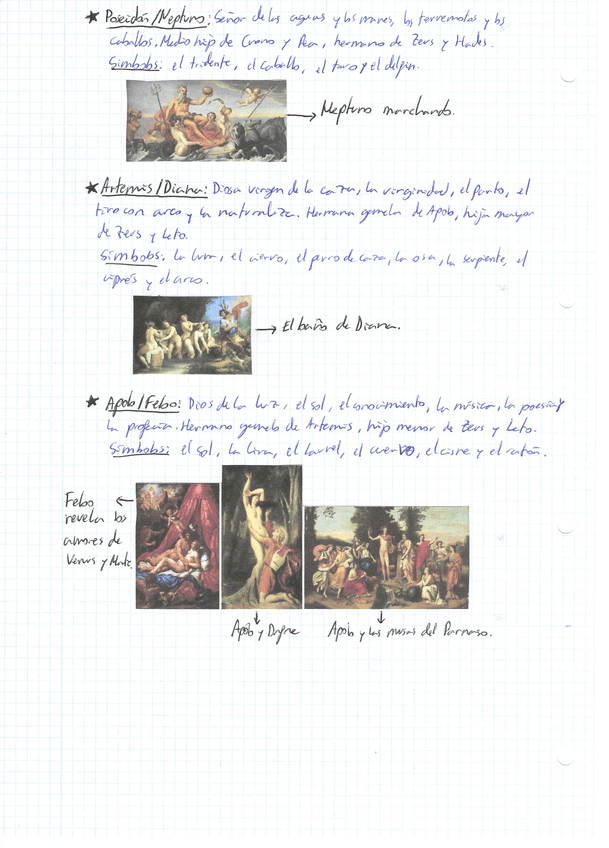 ★ Poseidón/Neptuno: Señor de las aguas y los mares, los terremotos y los
caballos. Medio hijo de Crono y Rea, hermano de Zeus y Hades.
Símbolos: el tridente, el caballo, el toro y el delfín.
→ Neptuno marchando.
★ Artemis/Diana: Diosa virgen de la caza, la virginidad, el parto, el
tiro con arco y la naturaleza. Hermana gemela de Apolo, hija mayor
de Zeus y Leto.
Símbolos: la luna, el ciervo, el perro de caza, la osa, la serpiente, el
ciprés y el arco.
→ El baño de Diana.
★ Apolo/Febo: Dios de la luz, el sol, el conocimiento, la música, la poesía y
la profecía. Hermano gemelo de Artemis, hijo menor de Zeus y Leto.
Símbolos: el sol, la lira, el laurel, el cuervo, el cisne y el ratón.
Febo ←
revela los
amores de
Venus y Marte.
Apolo y Dafne
Apolo y las musas del Parnaso.